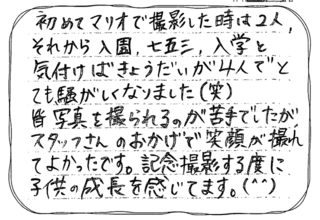 初めてマリオで撮影した時は2人,
それから入園, 七五三, 入学と
気付けばきょうだいが4人でと
ても騒がしくなりました(笑)
皆写真を撮られるのが苦手でしたが
スタッフさんのおかげで笑顔が撮れ
てよかったです。記念撮影する度に
子供の成長を感じてます。(^^)